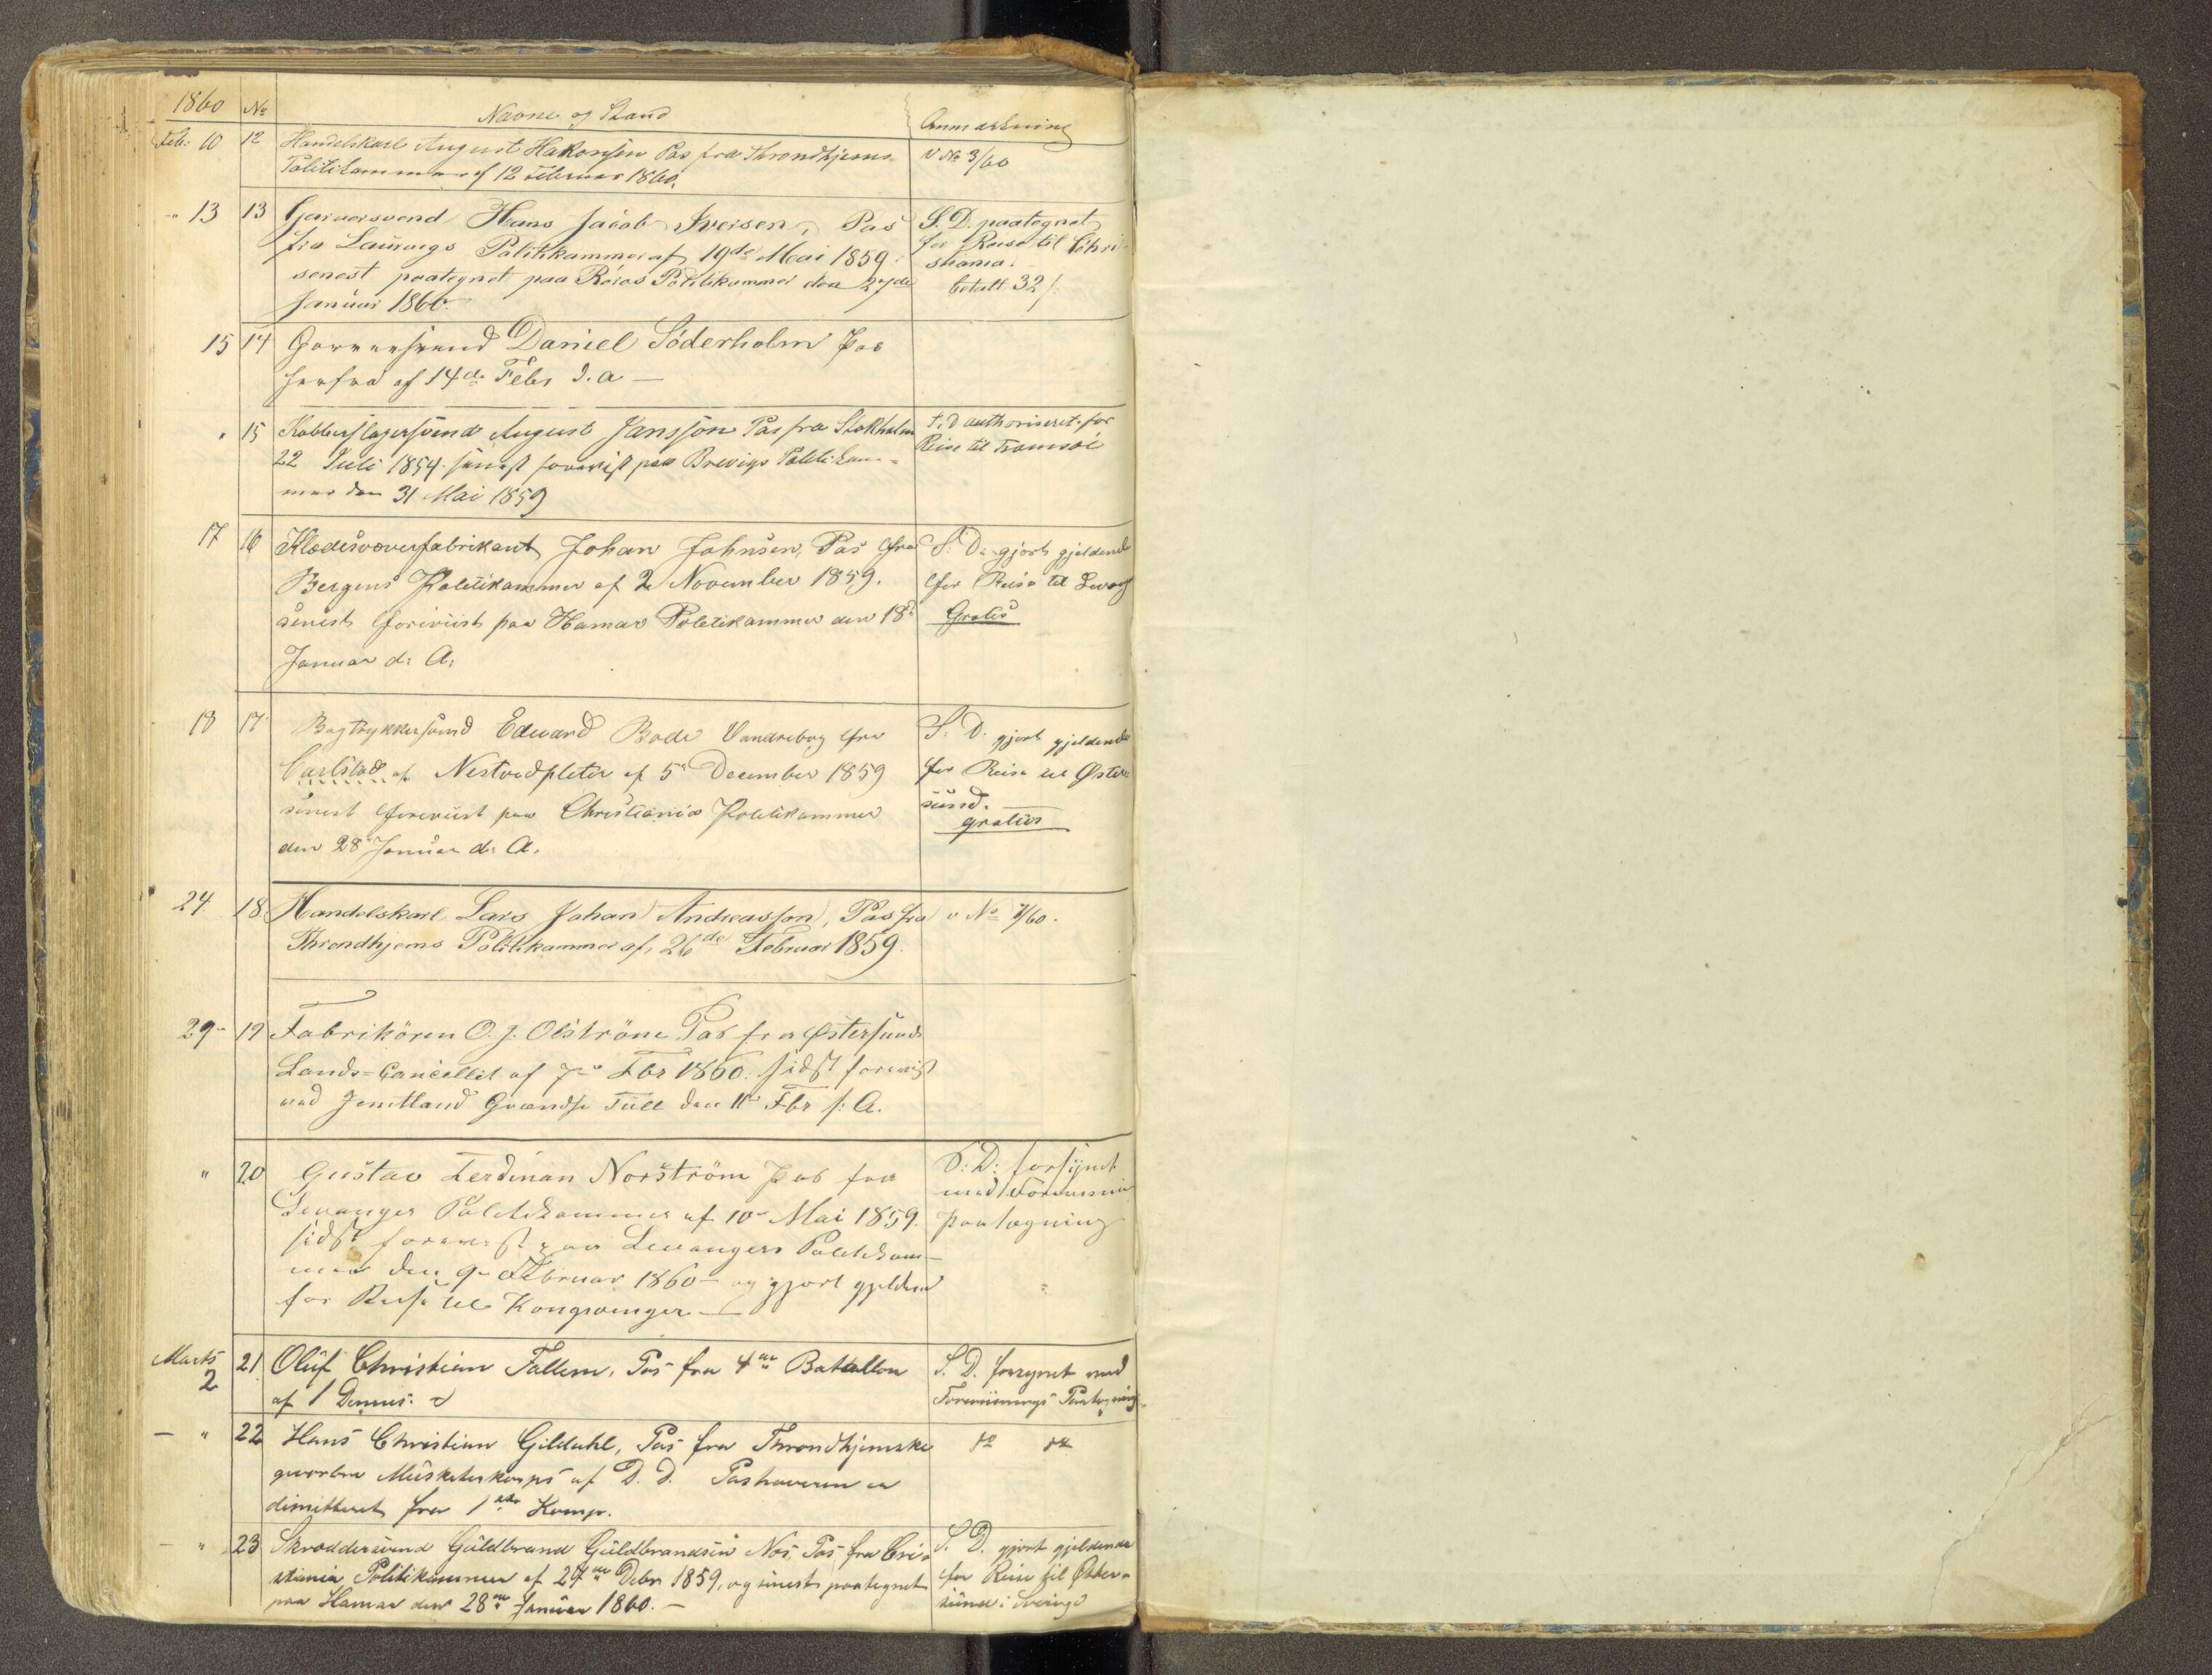 1860 No Navne og Stand Anmærkning
Feb: 10 12 Handelskarl August Hakonsen Pas fra Throndhjems V No 3/60
Politikammer af 12 Februar 1860.
" 13 13 Garversvend Hans Jacob Iversen, Pas S. D. paategnet
fra Laurvigs Politikkammer af 19de Mai 1859. for Reise til Chri-
senest paategnet paa Röros Politikammer den 27de stiania.
Januar 1860. betalt 32/
15 14 Garversvend Daniel Söderholm Pas
herfra af 14de Febr d. a —
" 15 Kobberslagersvend August Jansson Pas fra Stokholm S. D authoriseret for
22 Juli 1854. senest forevist paa Brevigs Politikam- Reise til Tromsöe
mer den 31 Mai 1859
17 16 Klædesvæverfabrikant Johan Johnsen, Pas fra S: D: gjort gjeldende
Bergens Politikammer af 2 November 1859. for Reise til
senest foreviist paa Hamar Politikammer den 18de Gratis
Januar d: A:
18 17 Bogtrykkersvend Edward Bode Vandrebog fra S: D: gjort gjeldende
Carlstad af 5te December 1859 for Reise til Øster-
senest foreviist paa Christiania Politikammer sund.
den 28 Januar d: A. gratis
24 18 Handelskarl Lars Johan Andreasson, Pas fra v No 7/60.
Throndhjems Politikammer af 26de Februar 1859.
29 19 Fabrikören O. J. Olströne Pas fra Østersunds
Lands=Cancellit af 7de Fbr 1860. sidst forevist
ved Jemtland Grændse Tull den 11te Fbr s: A.
" 20 Gustav Ferdinan Norström Pas fra S: D: forsynet
Levanger Politikammer af 10de Mai 1859. med
sidst forevist paa Levangers Politikam- paategning
mer den 9de Februar 1860 — og gjort gjelden
for Reise til Kongsvinger —
Marts 2 21 Oluf Christian Fallem, Pas fra 4de Batallon S. D. forsynet med
af 1 Foreviisnings Paategning
— " 22 Hans Christian Gildahl, Pas fra Throndhjemske do do
gevorbne Musketerkorps af D. D. Pashaveren er
dimitteret fra 1ste Komp.
— " 23 Skræddersvend Guldbrand Guldbrandsen Nos, Pas fra Cri- S. D. gjort gjeldende
stiania Politikammer af 29de Debr 1859, og senest paategnet for Reise til Øster-
paa Hamar den 28de Januar 1860. — sund i Sverige